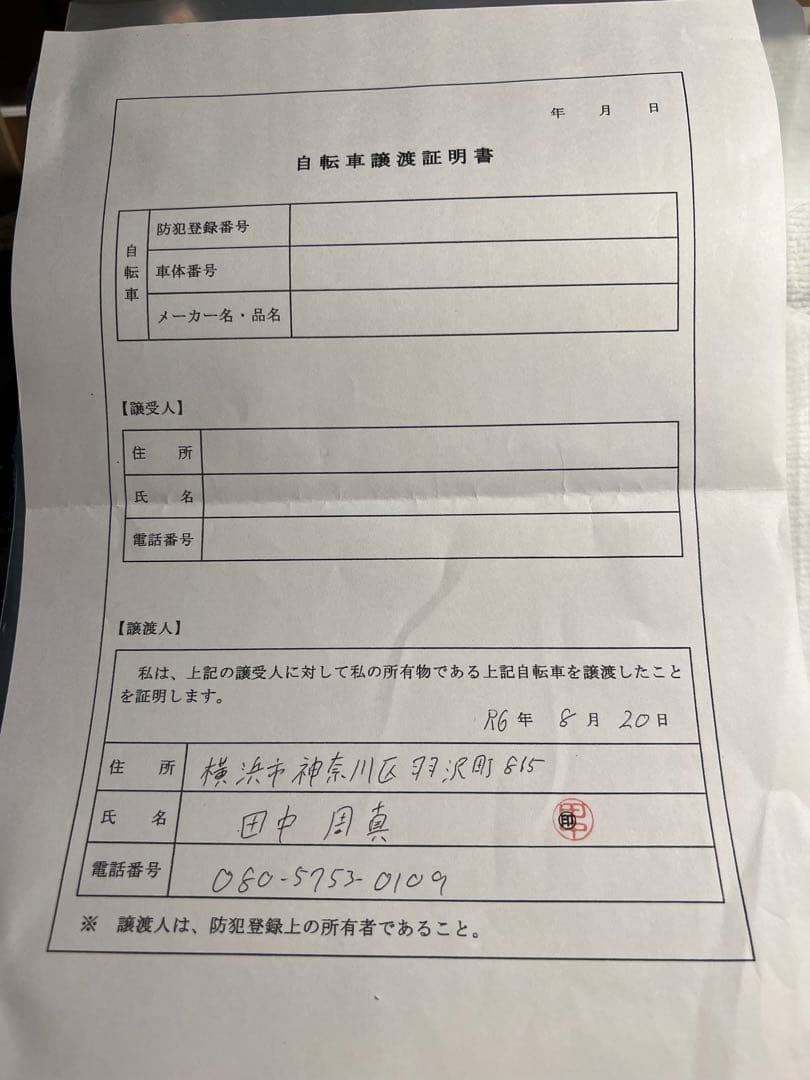 年 月 日
自転車譲渡証明書
自転車
防犯登録番号
車体番号
メーカー名・品名
【譲受人】
住 所
氏 名
電話番号
【譲渡人】
私は、上記の譲受人に対して私の所有物である上記自転車を譲渡したこと
を証明します。
R6年 8月 20日
住 所 横浜市神奈川区羽沢町815
氏 名 田中 周真 ㊞ 田中
電話番号 080-5753-0109
※ 譲渡人は、防犯登録上の所有者であること。